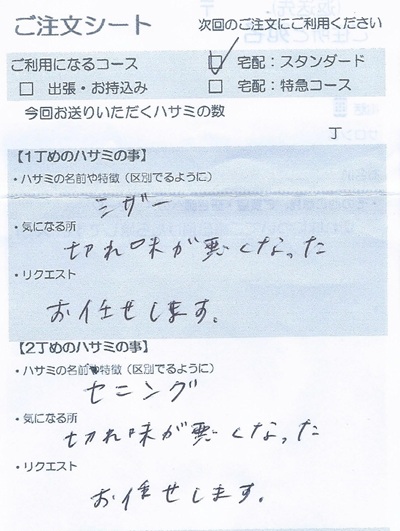 ご注文シート
次回のご注文にご利用ください
ご利用になるコース
□ 宅配：スタンダード
□ 出張・お持込み
□ 宅配：特急コース
今回お送りいただくハサミの数
丁
【1丁めのハサミの事】
・ハサミの名前や特徴（区別でるように）
シザー
・気になる所
切れ味が悪くなった
・リクエスト
お任せします。
【2丁めのハサミの事】
・ハサミの名前や特徴（区別でるように）
セニング
・気になる所
切れ味が悪くなった
・リクエスト
お任せします。